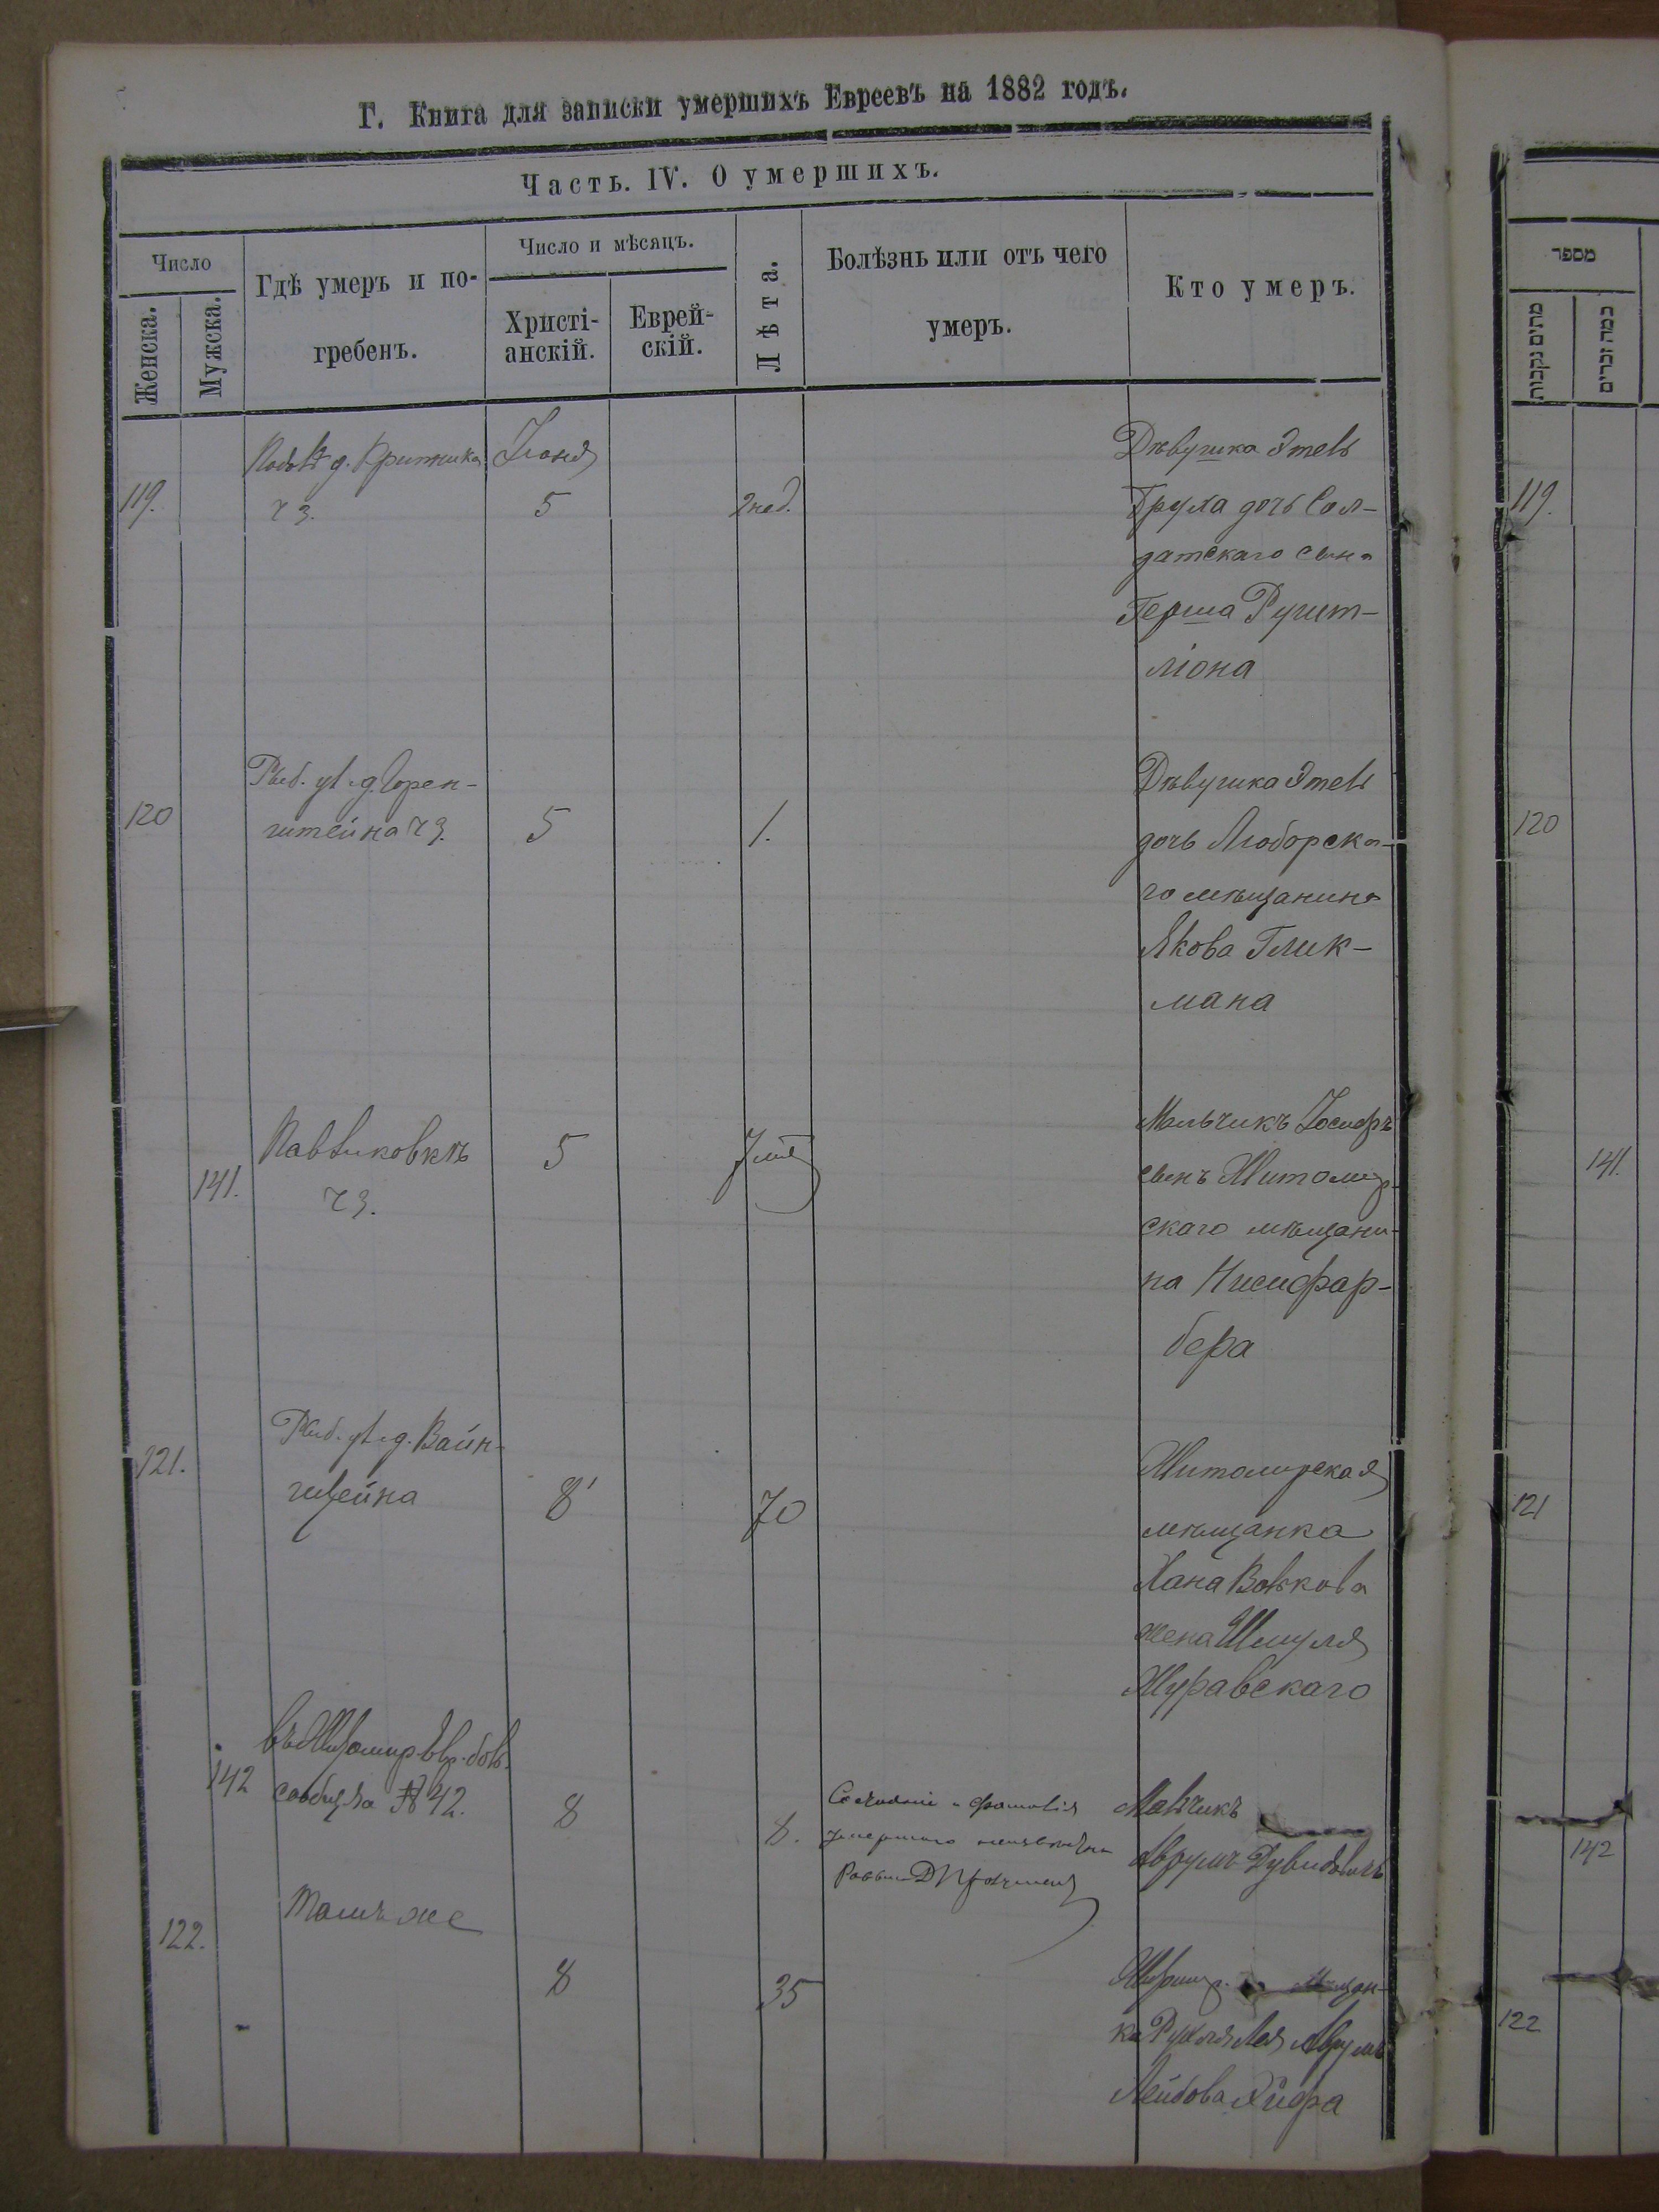 Г. Книга для записки умершихъ Евреевъ на 1882 годъ.
Часть. IV. О умершихъ.
Число
Женска.
Мужска.
Гдѣ умеръ и по-
гребенъ.
Число и мѣсяцъ.
Христі-
анскій.
Еврей-
скій.
Лѣта.
Болѣзнь или отъ чего
умеръ.
Кто умеръ.
119.
д.
ч 3.
Іюня
5
2 нед.
Дѣвушка Этель
Бруха дочь Сол-
датскаго сына
Герша
ліона
120
Рыб. ул. д. Горен-
штейна ч 3.
5
1.
Дѣвушка Этель
дочь Люборска-
го мѣщанина
Якова Глик-
мана
141.
Павликовкѣ
ч 3.
5
7
Мальчикъ Іосифъ
сынъ Житомир-
скаго мѣщани-
на Нисифар-
бера
121.
Рыб. ул. д. Вайн-
штейна
8
70
Житомирская
мѣщанка
Хана Волькова
жена Шмуля
Журавскаго
142
въ Житомир. Евр. бол.
сообщ. за № 42.
8
8.
Состояніе и фамилія
умершаго неизвѣстны
Мальчикъ
Аврумъ Дувидовичъ
122.
Тамъ же
8
35
Житомир. мѣщан-
ка Рухля Лея Аврумъ
Лейбова
מספר
מתים נקבות
כמה זכרים
119.
120
141.
121
142
122